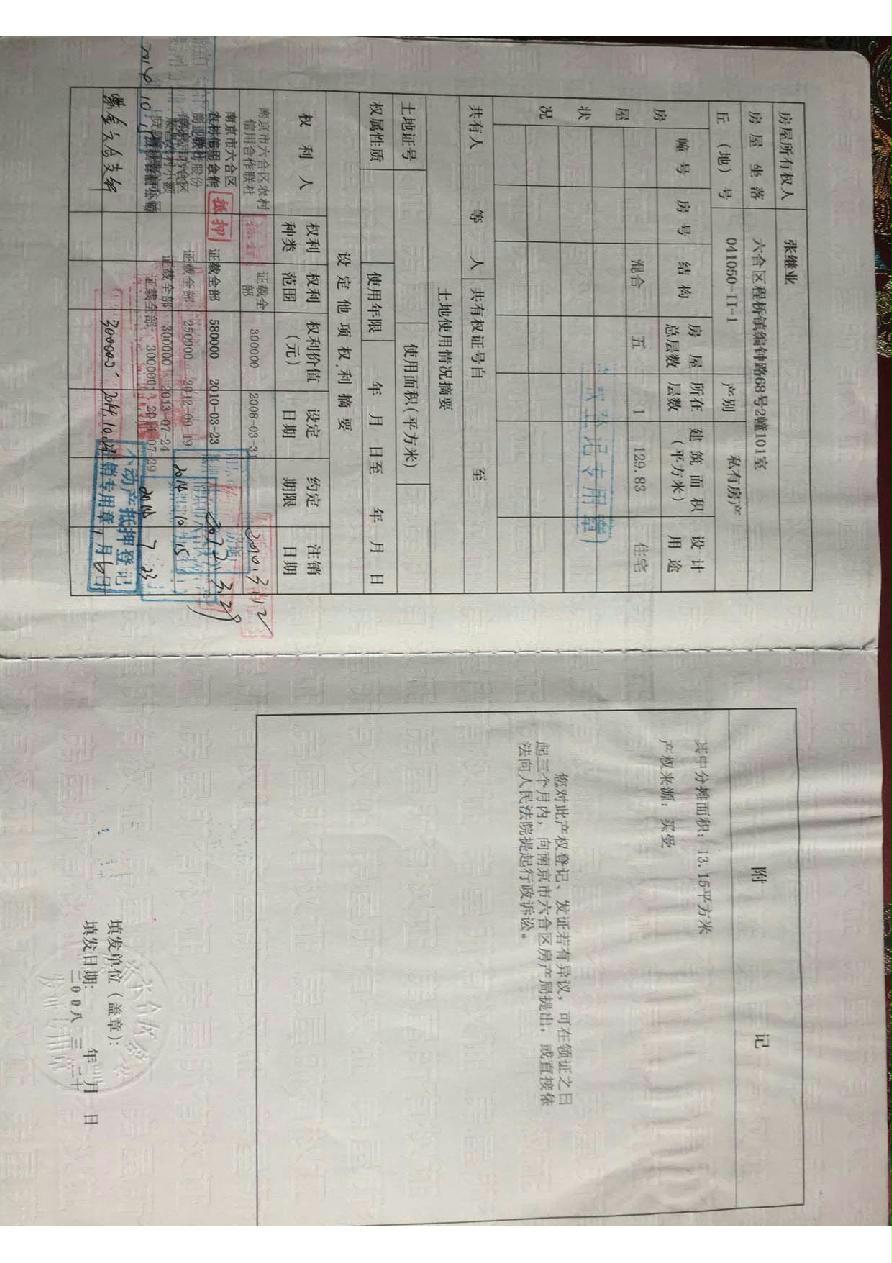 房屋所有权人 张继业
房屋坐落 六合区程桥镇编钟路68号2幢101室
丘(地)号 041050-II-1 产别 私有房产
房屋状况
幢号 房号 结构 房屋总层数 所在层数 建筑面积(平方米) 设计用途
混合 五 1 129.83 住宅
共有人 等 人 共有权证号自 至
土地使用情况摘要
土地证号 使用面积(平方米)
权属性质 使用年限 年 月 日至 年 月 日
设定他项权利摘要
权利人 权利种类 权利范围 权利价值(元) 设定日期 约定期限 注销日期
南京市六合区农村信用合作联社 抵押 证载全部 300000 2008-03-31 2010.3.12
南京市六合区农村信用合作 抵押 证载全部 580000 2010-03-23
证载全部 250000 2012-09-19
证载全部 300000 2013-07-24
证载全部 300000
300000 2014.10.
不动产抵押登记
销专用章
附 记
其中分摊面积:13.15平方米
产权来源:买受
您对此产权登记、发证若有异议,可在领证之日
起三个月内,向南京市六合区房产局提出,或直接依
法向人民法院提起行政诉讼。
填发单位(盖章):
填发日期: 年 月 日